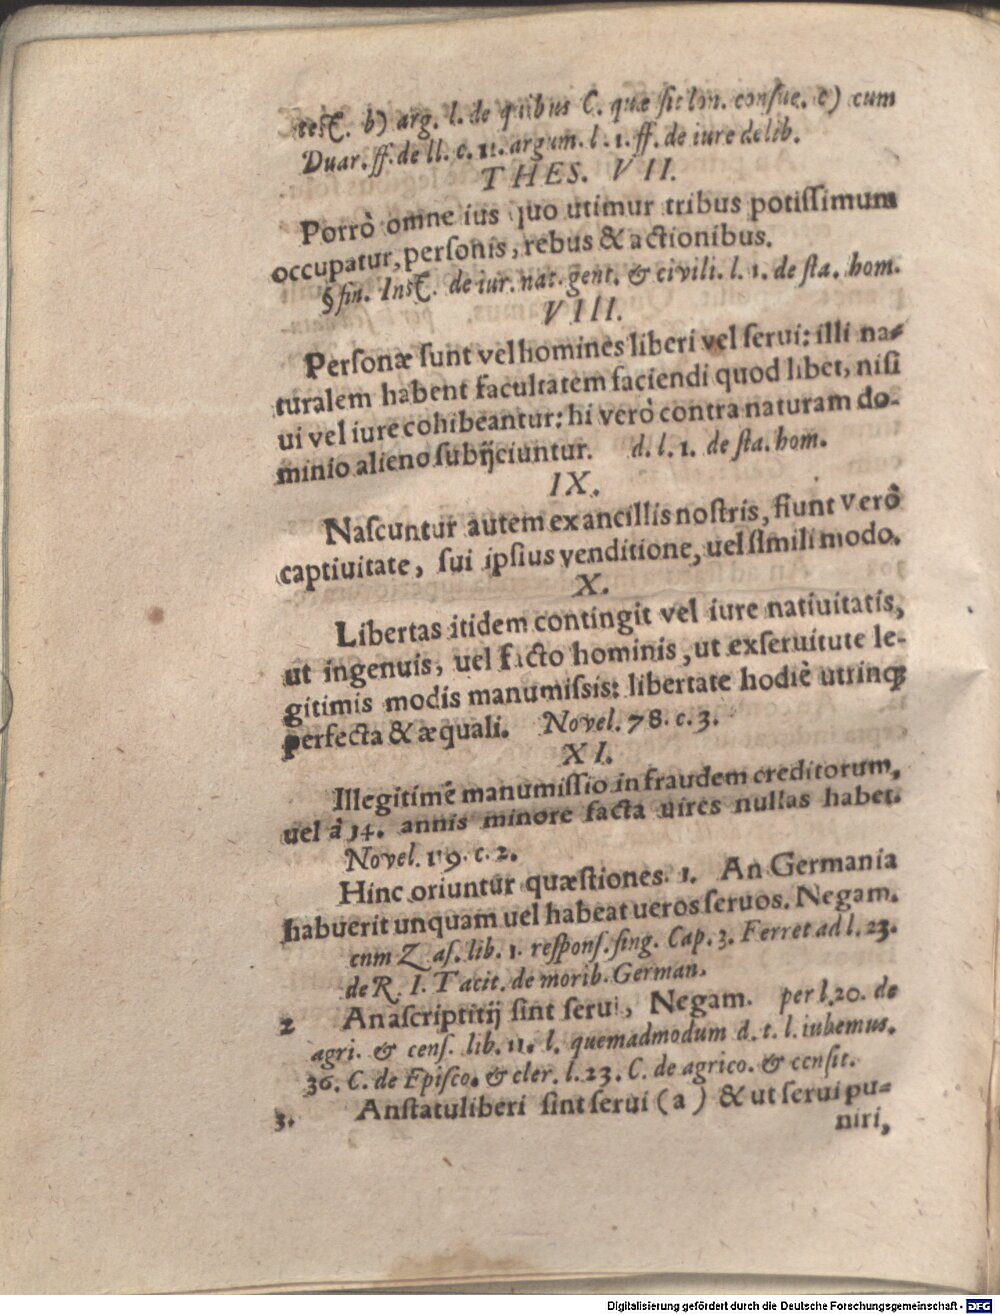 b) arg. l. de quibus C. quæ sit lon. consue. c) cum
Duar. ff. de ll. c. 11. argum. l. 1. ff. de iure delib.
THES. VII.
Porrò omne ius quo utimur tribus potiſſimum
occupatur, perſonis, rebus & actionibus.
§ fin. Inſt. de iur. nat. gent. & civili. l. 1. de ſta. hom.
VIII.
Perſonæ ſunt vel homines liberi vel ſerui: illi na-
turalem habent facultatem faciendi quod libet, niſi
ui vel iure cohibeantur: hi verò contra naturam do-
minio alieno ſubijciuntur. d. l. 1. de ſta. hom.
IX.
Naſcuntur autem ex ancillis noſtris, fiunt verò
captiuitate, ſui ipſius venditione, uel ſimili modo.
X.
Libertas itidem contingit vel iure natiuitatis,
ut ingenuis, uel facto hominis, ut ex ſeruitute le-
gitimis modis manumiſsis: libertate hodiè utrinq;
perfecta & æquali. Novel. 78. c. 3.
XI.
Illegitimè manumiſſio in fraudem creditorum,
uel à 14. annis minore facta uires nullas habet.
Novel. 119. c. 2.
Hinc oriuntur quæſtiones. 1. An Germania
habuerit unquam uel habeat ueros ſeruos. Negam.
cum Zaſ. lib. 1. reſponſ. ſing. Cap. 3. Ferret ad l. 23.
de R. I. Tacit. de morib. German.
2 An aſcriptitij ſint ſerui, Negam. per l. 20. de
agri. & cenſ. lib. 11. l. quemadmodum d. t. l. iubemus.
36. C. de Epiſco. & cler. l. 23. C. de agrico. & cenſit.
3. An ſtatuliberi ſint ſerui (a) & ut ſerui pu-
niri,
Digitalisierung gefördert durch die Deutsche Forschungsgemeinschaft - DFG